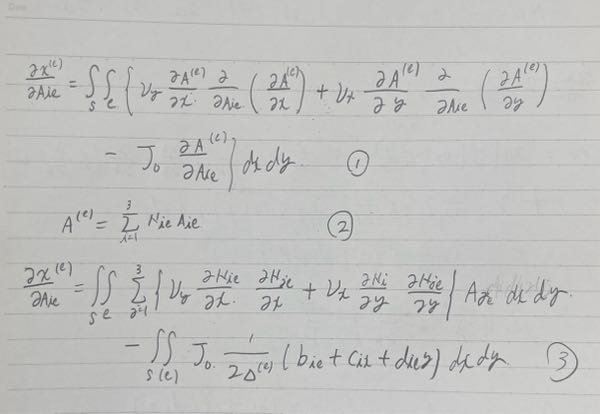 ∂χ^(e)/∂A_ie = ∬_S e { ν_y ∂A^(e)/∂x ∂/∂A_ie (∂A^(e)/∂x) + ν_x ∂A^(e)/∂y ∂/∂A_ie (∂A^(e)/∂y)
− J_0 ∂A^(e)/∂A_ie } dx dy. ①
A^(e) = Σ_{i=1}^{3} N_ie A_ie ②
∂χ^(e)/∂A_ie = ∬_S e Σ_{j=1}^{3} { ν_y ∂N_ie/∂x ∂N_je/∂x + ν_x ∂N_i/∂y ∂N_je/∂y } A_je dx dy.
− ∬_S(e) J_0 1/2Δ^(e) (b_ie + c_i x + d_ie y) dx dy. ③